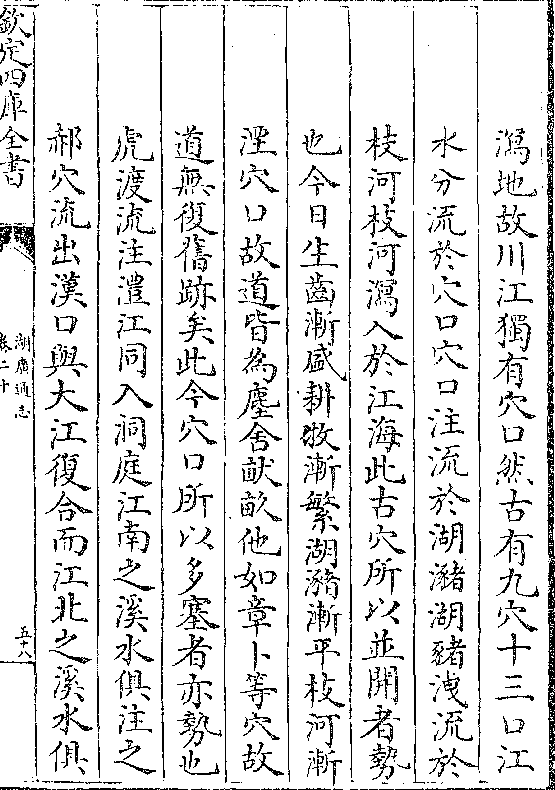 瀉地故川江獨有穴口然古有九穴十三口江
水分流於穴口穴口注流於湖瀦湖豬洩流於
枝河枝河瀉入於江海此古穴所以並開者勢
也今日生齒漸盛耕牧漸繁湖瀦漸平枝河漸
湮穴口故道皆為廛舍畎畝他如章卜等穴故
道無復舊跡矣此今穴口所以多塞者亦勢也
虎渡流注澧江同入洞庭江南之溪水俱注之
郝穴流出漢口與大江復合而江北之溪水俱
欽定四庫全書
湖廣通志
卷二十
五十八